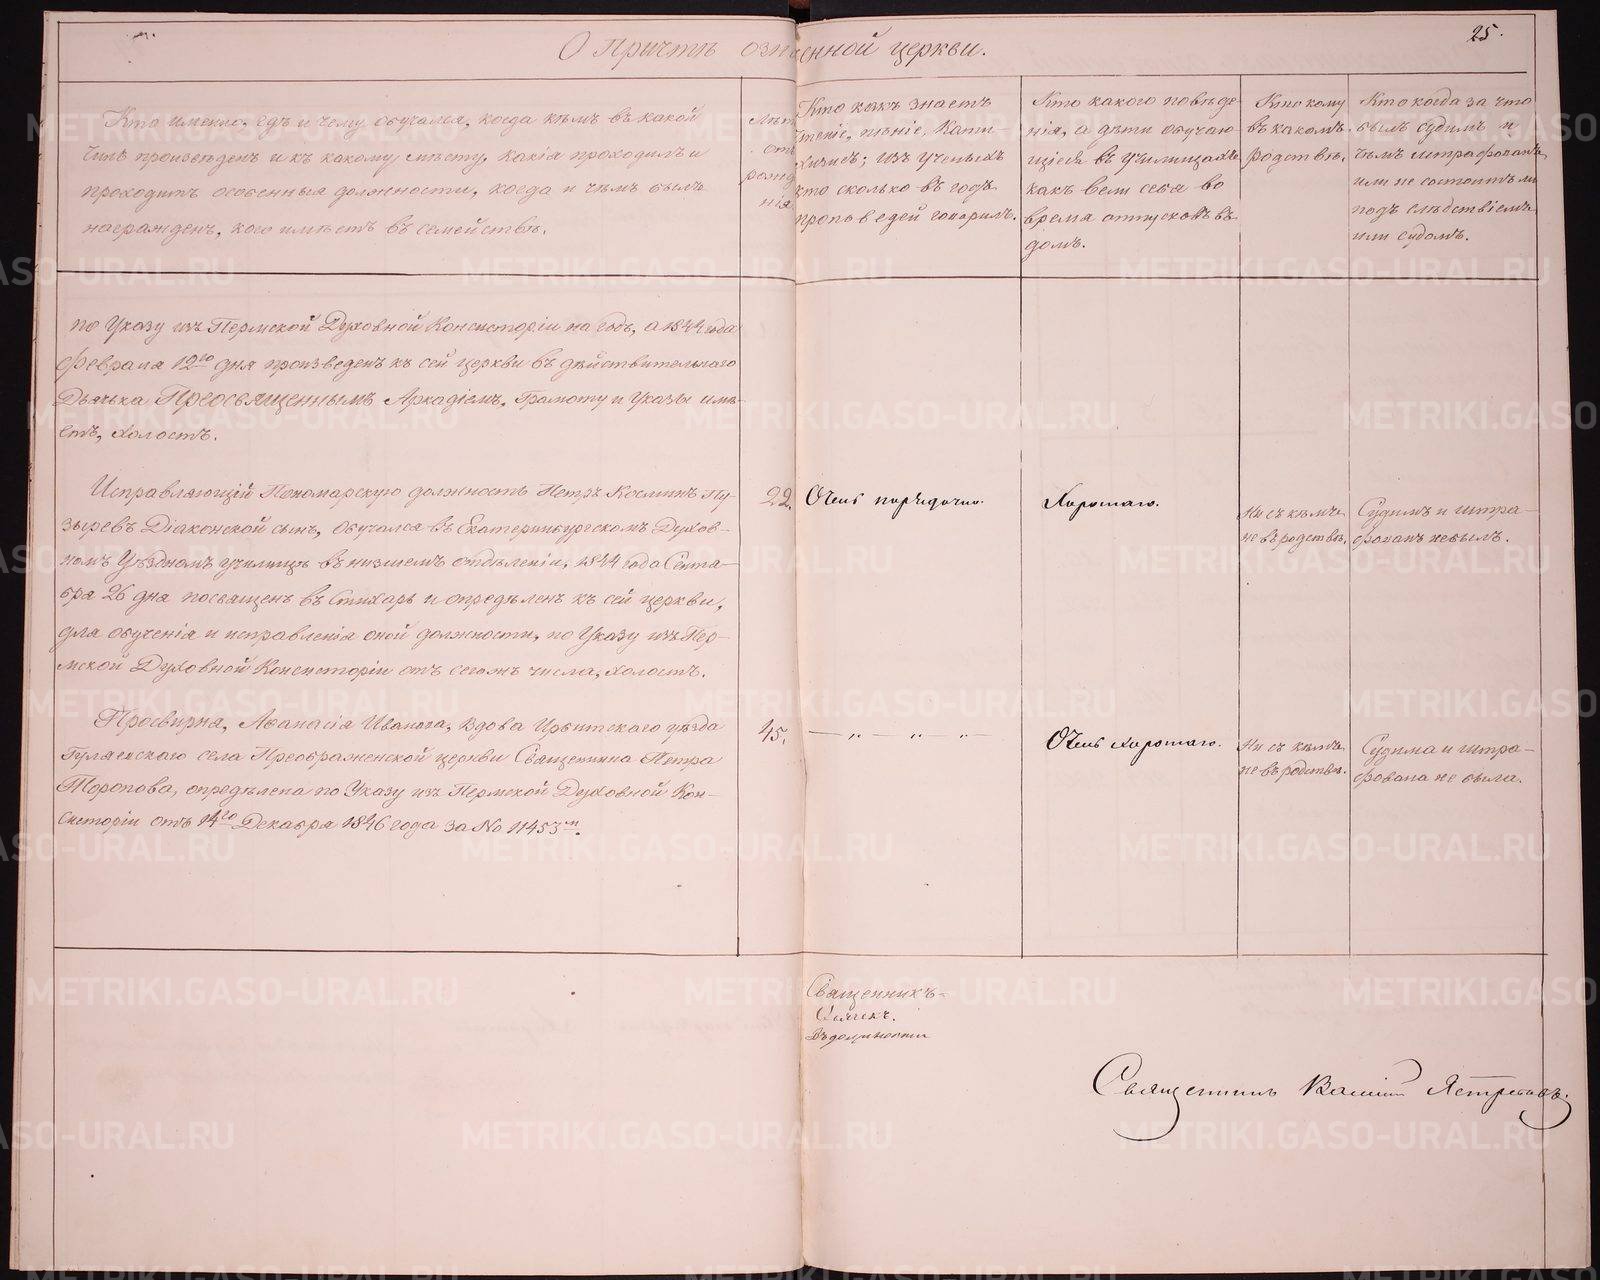 25.
О Причтѣ означенной церкви.
Кто именно, гдѣ и чему обучался, когда кѣмъ въ какой
чинъ произведенъ и къ какому мѣсту, какія проходилъ и
проходитъ особенныя должности, когда и чѣмъ былъ
награжденъ, кого имѣетъ въ семействѣ.
Лѣт
отъ
рожд
нія
Кто какъ знаетъ
чтеніе, пѣніе, Кати-
хизисъ; изъ ученыхъ
кто сколько въ годъ
проповедей говорилъ.
Кто какого поведе-
нія, а дѣти обучаю-
щіеся въ училищахъ
какъ вели себя во
время отпусковъ въ
домъ.
Кто кому
въ какомъ
родствѣ,
Кто когда за что
былъ судимъ и
чѣмъ штрафованъ,
или не состоитъ ли
подъ слѣдствіемъ
или судомъ.
по Указу изъ Пермской Духовной Консисторіи на годъ, а 1844 года
Февраля 12го дня произведенъ къ сей церкви въ дѣйствительнаго
Дьячка Преосвященнымъ Аркадіемъ. Грамоту и Указы имѣ-
етъ, холостъ.
Исправляющій Пономарскую должность Петръ Косминъ Пу-
зыревъ Діаконской сынъ, обучался въ Екатеринбургскомъ Духов-
номъ Уѣздномъ училищѣ въ низшемъ отдѣленіи, 1844 года Сентя-
бря 26 дня посвященъ въ Стихарь и опредѣленъ къ сей церкви,
для обученія и исправленія оной должности, по Указу изъ Пер-
мской Духовной Консисторіи отъ сегожъ числа, холостъ.
22.
Очень порядочно.
Хорошаго.
Ни съ кѣмъ
не въ родствѣ.
Судимъ и штра-
фованъ небылъ.
Просвирня, Афанасія Иванова, Вдова Ирбитскаго уѣзда
Гуляевскаго села Преображенской церкви Священника Петра
Торопова, опредѣлена по Указу изъ Пермской Духовной Кон-
систоріи отъ 14го Декабря 1846 года за No 11453м.
45.
— „ — „ — „ —
Очень хорошаго.
Ни съ кѣмъ
не въ родствѣ.
Судима и штра-
фована не была.
Священникъ-
Дьячекъ.
Въ должности
Священникъ Василій Ястребовъ.
METRIKI.GASO-URAL.RU